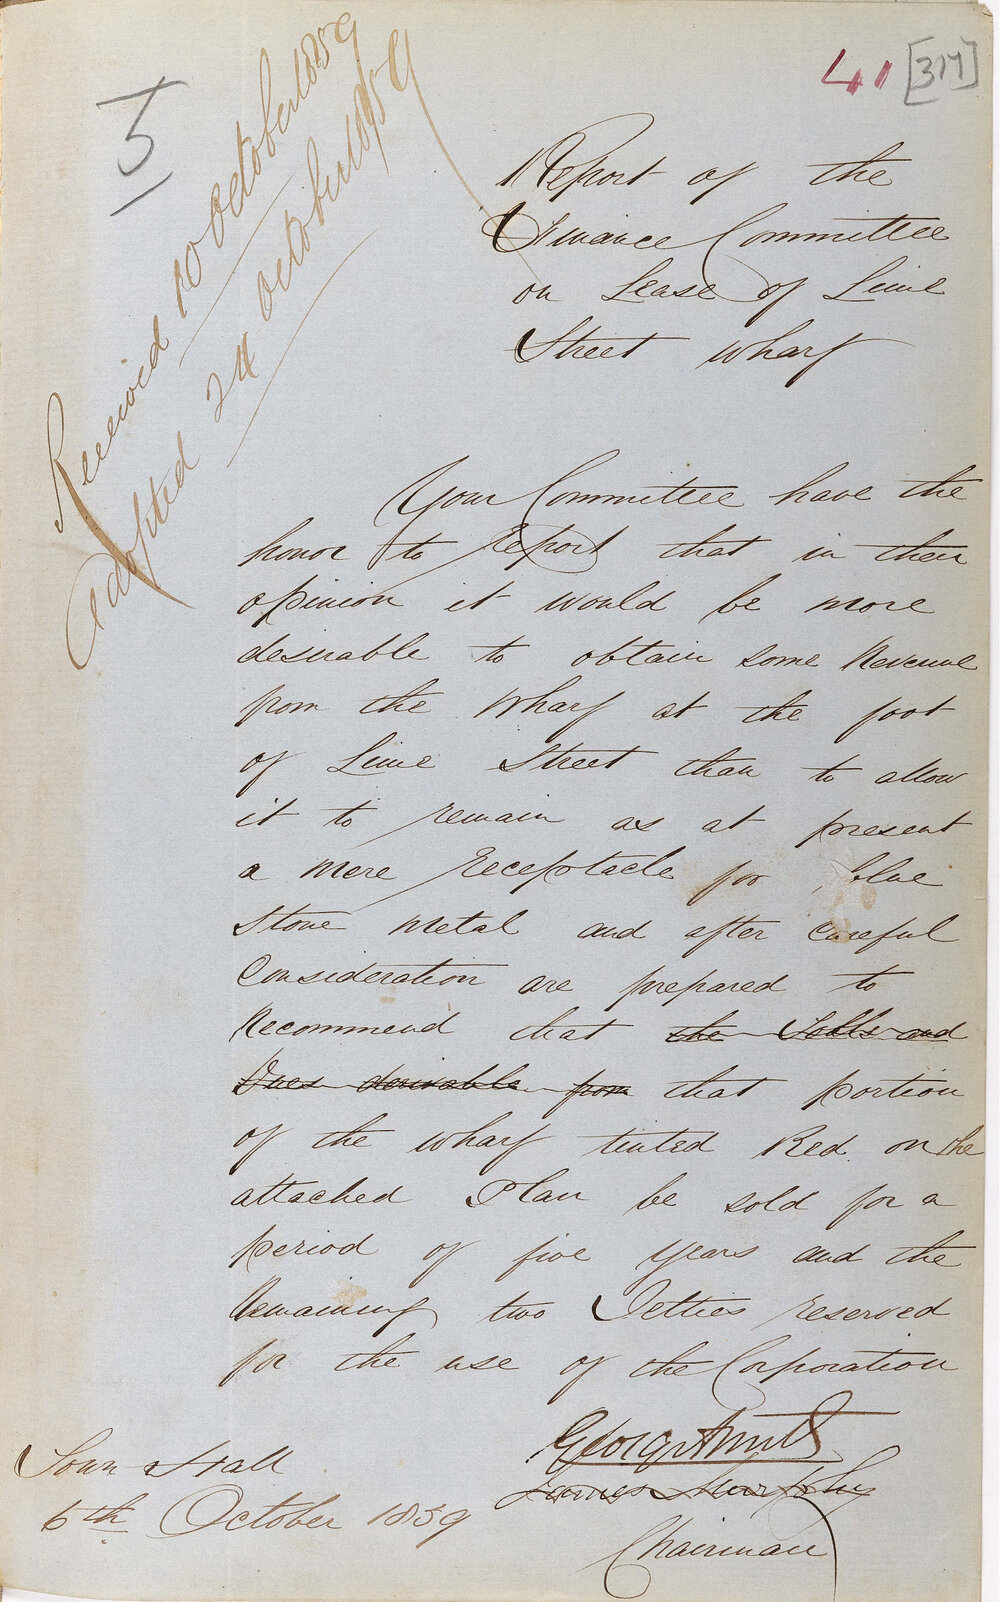 5
41 [317]
Received 10 October 1859
Adopted 24 October 1859
Report of the
Finance Committee
on Lease of Lime
Street Wharf
Your Committee have the
honor to report that in their
opinion it would be more
desirable to obtain some Revenue
from the Wharf at the foot
of Lime Street than to allow
it to remain as at present
a mere receptacle for blue
stone metal and after careful
Consideration are prepared to
Recommend that the Tolls and
Dues derivable from that portion
of the wharf tinted Red on the
attached Plan be sold for a
period of five years and the
Remaining two Jetties reserved
for the use of the Corporation
George Smith
James Murphy
Chairman
Town Hall
6th October 1859